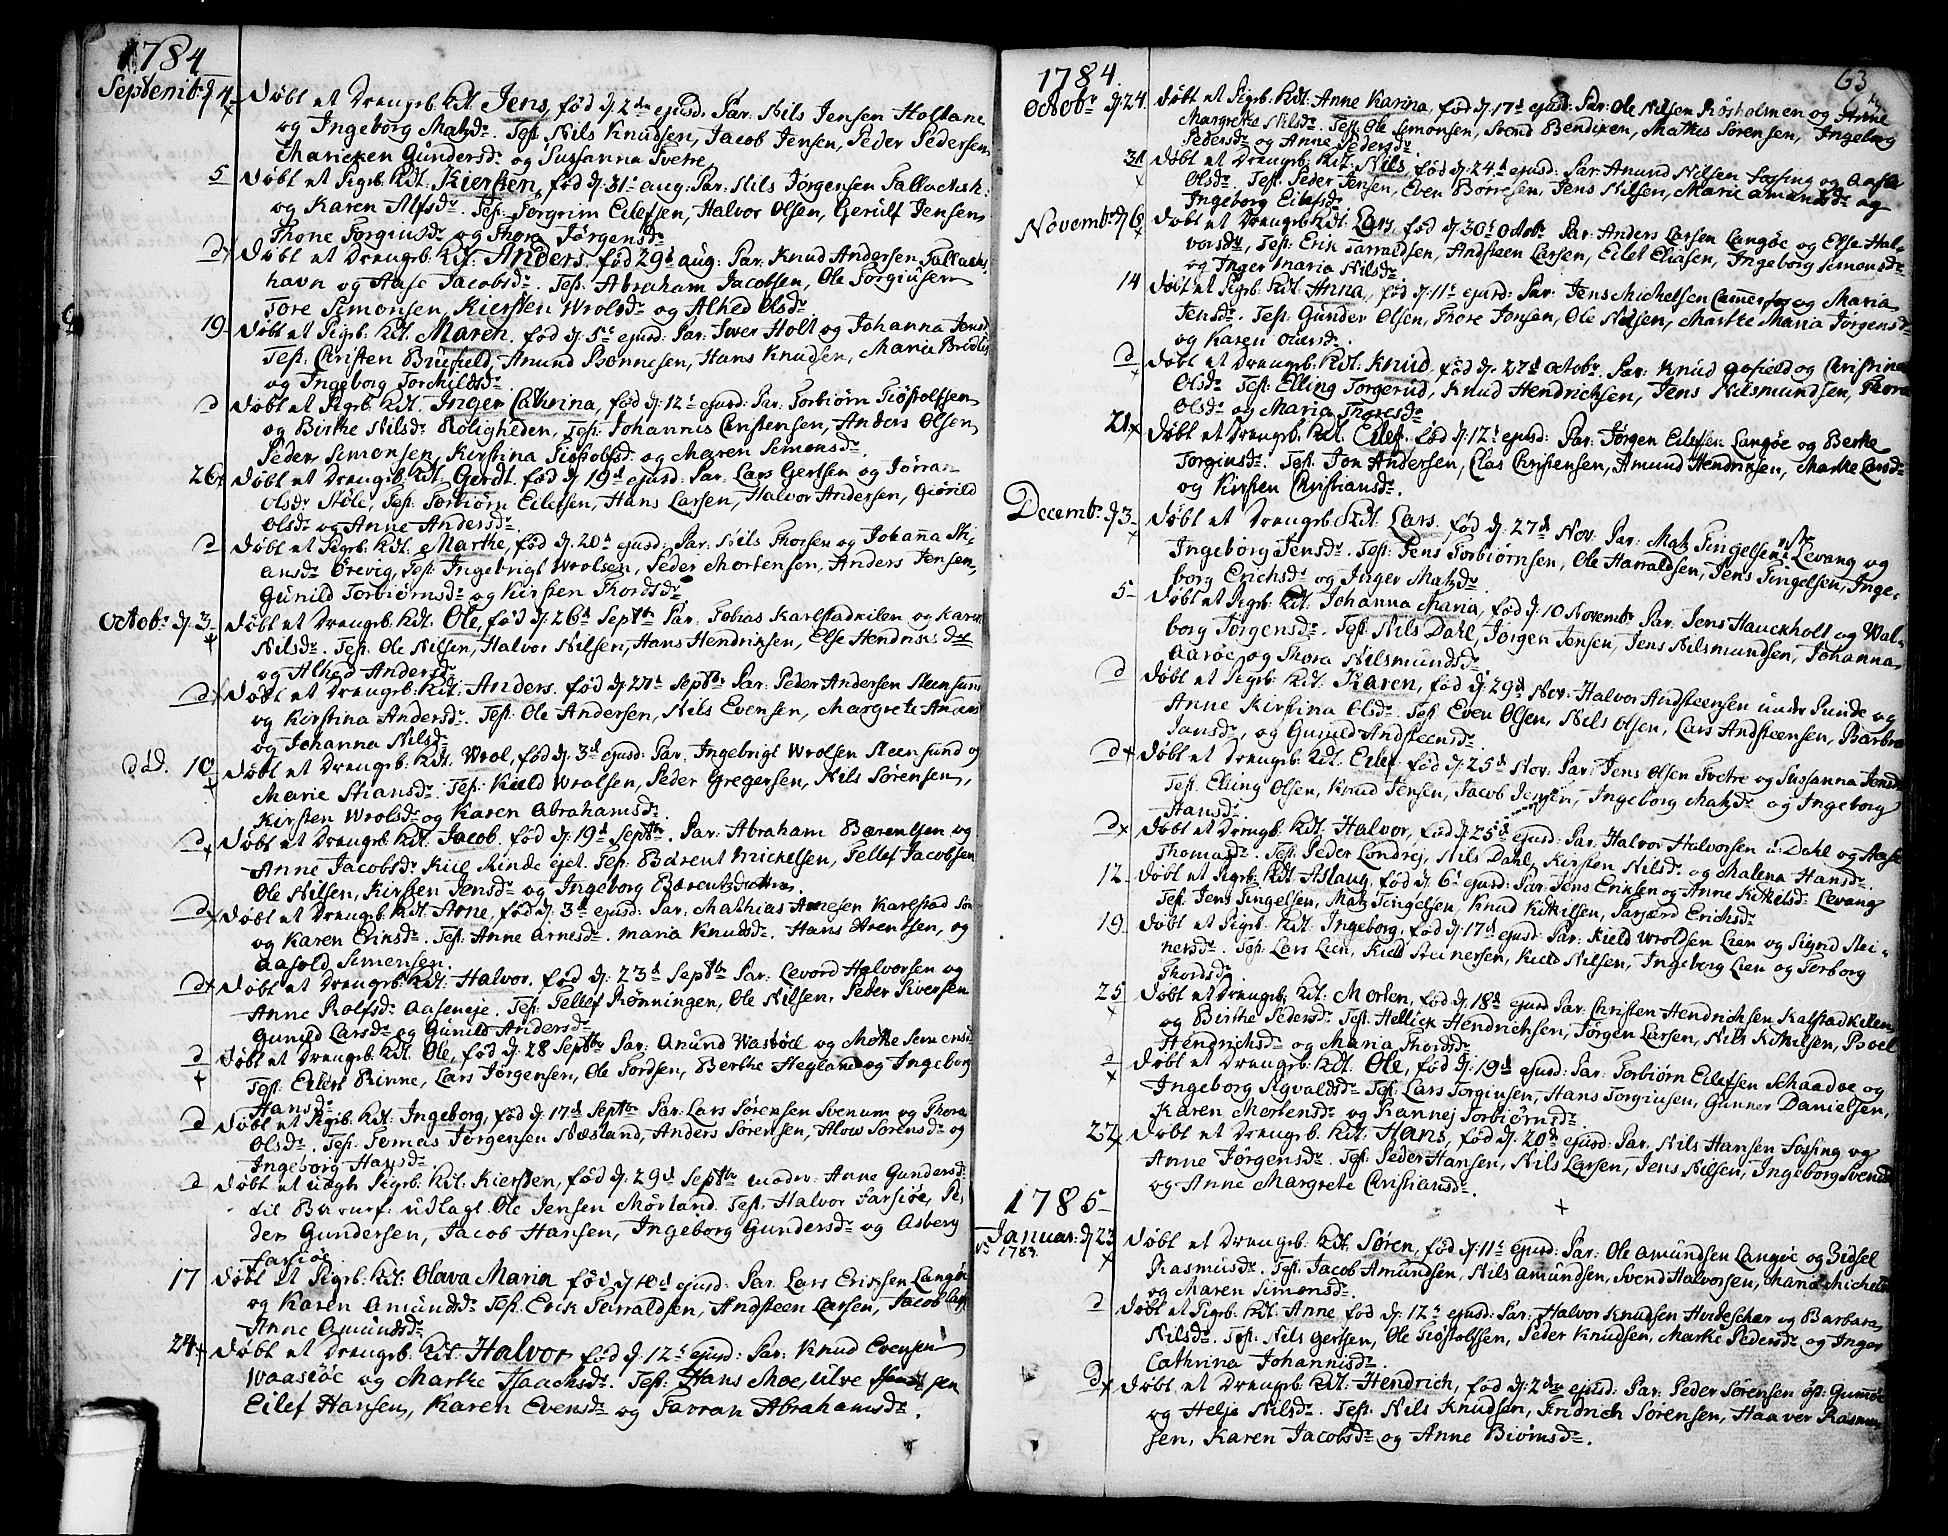 1784
Septembr d 4. Døbt et Drengb. Kdt. Jens, fød d. 2de ejusd. Par. Nils Jensen Holtane
og Ingeborg Matzdr. Test. Nils Knudsen, Jacob Jensen, Peder Pedersen
Maricken Gundersdr og Sussanna Tvetre.
5 Døbt et Pigeb. Kdt. Kiersten, fød d. 31t aug. Par. Nils Jørgensen
og Karen Alfsdr. Test. Torgrim Eilefsen, Halvor Olsen, Gerulf Jensen
Thone Torgiusdr og Thora Jørgensdr
d Døbt et Drengb. Kdt. Anders, fød 29d aug: Par. Knud Andersen
havn og Aase Jacobsdr. Test. Abraham Jacobsen, Ole Torgiusen
Tore Simonsen, Kiersten Wrolsdr og Alhed Olsdr
19 Døbt et Pigeb. Kdt. Maren. fød d. 5t ejusd: Par. Iver Holt og Johanna Jensd
Test. Christen Amund Bonnesen, Hans Knudsen, Maria
og Ingeborg Torchildsdr
d Døbt et Pigb. Kdt. Inger Cathrina, fød d. 12t ejusd: Par. Torbiørn Tiøstolfsen
og Birthe Nilsdr Roligheden, Test. Johannis Christensen, Anders Olsen
Peder Simonsen, Kirstina Tiostolfsd og Maren Simonsdr.
26 Døbt et Drengb. Kdt. Gerdt. fød d. 19d ejusd: Par. Lars Gertsen og Jørran
Olsdr Støle, Test. Torbiørn Eilefsen, Hans Larsen, Halvor Andersen, Giørild
Olsdr og Anne Andersdr.
d Døbt et Pigb. Kdt. Marthe, fød d. 20d ejusd: Par. Nils Thorsen og Johanna Sti-
ansdr Ørevig, Test. Ingebrigt Wrolsen, Peder Mortensen, Anders Jensen,
Gunild Torbiørnsdr og Kirsten Thordsdr
octobr d. 3. Døbt et Drengb. Kdt. Ole, fød d. 26d Septbr Par. Tobias Karlstadkilen og Karen
Nilsdr. Test. Ole Nilsen, Halvor Nilsen, Hans Hendrichsen, Else Hendrichsdr
og Alhed Andersdr
d Døbt et Drengb. Kdt. Anders. fød d. 27d Septbr Par: Peder Andersen Steensund
og Kirstina Andersdr. Test. Ole Andersen, Nils Evensen, Margrete
og Johanna Nilsdr
Død. 10 Døbt et Drengb. Kdt. Wrol, fød d. 3d ejusd: Par. Ingebrigt Wrolsen Steensund og
Marie Stiansdr. Test. Kield Wrolsen, Peder Gregersen, Nils Sørensen,
Kirsten Wrolsdr og Karen Abrahamsdr.
d Døbt et Drengb. Kdt. Jacob. fød d. 19d Septbr. Par: Abraham Bærentsen og
Anne Jacobsdr Test. Bærent Mickelsen, Tellef Jacobsen
Ole Nilsen, Kirsten Jensdr og Ingeborg
d Døbt et Drengb. Kdt. Arne, fød d. 3d ejusd: Par. Mathias Arnesen Karlstad
og Karen Ericksdr. Test. Anne Arnesdr. Maria Knudsdr. Hans Arentsen, og
Aasold Simensen.
d Døbt et Drengb. Kdt. Halvor. fød d. 23d Septbr Par. Levord Halvorsen og
Anne Rolfsdr Aaseneje. Test. Tellef Rønningen, Ole Nilsen, Peder Siversen
Gunild Larsdr og Gunild Andersdr
d Døbt et Drengb. Kdt. Ole, fød d. 28 Septbr Par. Amund Wasbøe og Mette
Test. Eilert Rinne, Lars Jørgensen, Ole Tordsen, Berthe Hegland og Ingeborg
Hansdr
d Døbt et Pigb. Kdt. Ingeborg, fød d. 17d Septbr Par. Lars Sørensen Svenum og Thora
Olsdr. Test. Tomas Jørgensen Næsland, Anders Sørensen, Alow Sørensdr og
Ingeborg Hansdr
d Døbt et uægh Pigb. Kdt. Kiersten, fød d. 29d Septbr modr. Anne Gundersd
til Barnef. udlagt Ole Jensen Mørland. Test. Halvor Farsiøe, Pe-
der Gundersen, Jacob Hansen, Ingeborg Gundersdr og Asberg
Farsiøe
17 Døbt et Pigb. Kdt. Olava Maria fød d. 10d ejusd: Par. Lars Ericksen Langøe
og Karen Amundsdr Test. Erick Tarraldsen, Andsteen Larsen, Jacob
Anne Amundsdr
24 Døbt et Drengb. Kdt. Halvor fød d. 12t ejusd: Par. Knud Evensen
Waasøe og Marthe Isaachsdr. Test. Hans Moe, Ulve
Eilef Hansen, Karen Evensdr og Tarran Abrahamsdr.
1784. 63
octobr d. 24. Døbt et Pigb. Kdt. Anne Karina, fød d. 17d ejusd: Par: Ole Nilsen Røsholmen og Anne
Margrethe Nilsdr. Test. Ole Simonsen, Trond Bendixen, Mathes Sørensen, Ingeborg
Pedersdr og Anne Pedersdr
31 Døbt et Drengb. Kdt. Nils. fød d. 24d ejusd: Par. Amund Nilsen Fossing og Aase
Olsdr. Test. Peder Jensen, Even Børresen, Jens Nilsen, Marie Amundsdr og
Ingeborg Eilefsdr
Novembr d. 6 Døbt et Drengb. Kdt. Lars fød d. 30t octobr Par: Anders Larsen Langøe og Else Hal-
vorsdr, Test: Erik Tarraldsen, Andsteen Larsen, Eilef Eliasen, Ingeborg Simonsdr
og Inger Maria Nilsdr
14 Døbt et Pigb. Kdt. Anna, fød d. 11t ejusd: Par: Jens Michelsen og Maria
Jensdr. Test: Gunder Olsen, Thore Jonsen, Ole Nilsen, Marthe Maria Jørgensdr
og Karen
d Døbt et Drengb. Kdt. Knud, fød d. 27d octobr. Par. Knud Aasield og Christina
Olsdr Test: Elling Torgerud, Knud Hendrichsen, Jens Nilsmundsen, Thora
Olsdr og Maria Thoresdr
21 Døbt et Drengb. Kdt. Eilef. fød d. 12t ejusd: Par. Jørgen Eilefsen Langøe og Berthe
Torgiusdr. Test. Jon Andersen, Clas Christensen, Amund Hendrichsen, Marthe Larsdr
og Kirsten Christiansdr.
Decembr. d. 3 Døbt et Drengb. Kdt. Lars. fød d. 27de Nov. Par. Matz Tingelsen Levang og
Ingeborg Jensdr. Test: Jens Torbiørnsen, Ole Harraldsen, Jens Tingelsen, Inge-
borg Erichsdr og Inger Matzdr
5 Døbt et Pigb. Kdt. Johanna Maria, fød d. 10 Novembr Par. Jens Hauckholt og Wal-
borg Jørgensdr. Test. Nils Dahl, Jørgen Jensen, Jens Nilsmundsen, Johanna
Aarøe og Thora Nilsmundsdr
d Døbt et Pigb. Kdt. Karen, fød d. 29d Nov. Halvor Andsteensen under Sunde og
Anne Kirstina Olsdr. Test Even Olsen, Nils Olsen, Lars Andsteensen, Barbra
Jansdr, og Gunild Andsteensdr
d Døbt et Drengb. Kdt. Eilef fød d. 25d Nov. Par: Jens Olsen Tvetre og Sussanna Jensd
Test. Elling Olsen, Knud Jensen, Jacob Jensen, Ingeborg Matzdr og Ingeborg
Hansdr.
d Døbt et Drengb. Kdt. Halvor, fød d. 25d ejusd: Par. Halvor Halvorsen u. Dahl og Aase
Thomasdr. Test. Peder Londrej, Nils Dahl, Kirsten Nilsdr og Malena Hansdr.
12 Døbt et Pigb. Kdt Aslaug. fød d. 6t ejusd: Par: Jens Eriksen og Anne Kittilsdr Levang
Test. Jens Tingelsen, Matz Tingelsen, Knud Kittilsen, Tarjærd Erichsdr
19 Døbt et Pigb. Kdt. Ingeborg, fød d. 17d ejusd: Par: Kield Wroldsen Lien og Signd Stei-
nersdr. Test. Lars Lien, Kield Steinersen, Kield Nilsen, Ingeborg Lien og Torborg
Thordsdr
25 Døbt et Drengb. Kdt. Morten, fød d. 18d ejusd Par. Christen Hendrichsen Kalstadkilen
og Birthe Pedersdr. Test. Hellick Hendrichsen, Jørgen Larsen, Nils Kittilsen, Boel
Hendrichsdr og Maria Thordsdr
d Døbt et Drengb. Kdt. Ole, fød d. 19d ejusd: Par: Torbiørn Eilefsen Schaadøe og
Ingeborg Sigvaldsdr Test. Lars Torgiusen, Hans Torgiusen, Gunner Danielsen,
Karen Mortensdr og Rannej Torbiørnsdr.
27 Døbt et Drengb. Kdt. Hans, fød d. 20d ejusd: Par. Nils Hansen Fossing og
Anne Jørgensdr. Test. Peder Hansen, Nils Larsen, Jens Nilsen, Ingeborg Svends
og Anne Margrete Christiansdr.
1785
Januar: d 23 Døbt et Drengb. Kdt. Søren, fød d. 11t ejusd: Par: Ole Amundsen Langøe og Zidsel
1783. Rasmusdr. Test. Jacob Amundsen, Nils Amundsen, Svend Halvorsen, Maria Michels
og Maren Simonsdr.
d Døbt et Pigb. Kdt. Anne fød d. 12t ejusd: Par: Halvor Knudsen og Barbara
Nilsdr. Test. Nils Gertsen, Ole Tiøstolfsen, Peder Knudsen, Marthe Pedersdr og Inger
Cathrina Johannisdr.
d Døbt et Drengb. Kdt: Hendrich, fød d. 2den ejusd: Par. Peder Sørensen øst: Gumøe
og Helje Nilsdr. Test. Nils Knudsen, Fridrich Sørensen, Haaver Rasmu-
sen, Karen Jacobsdr og Anne Biørnsdr.